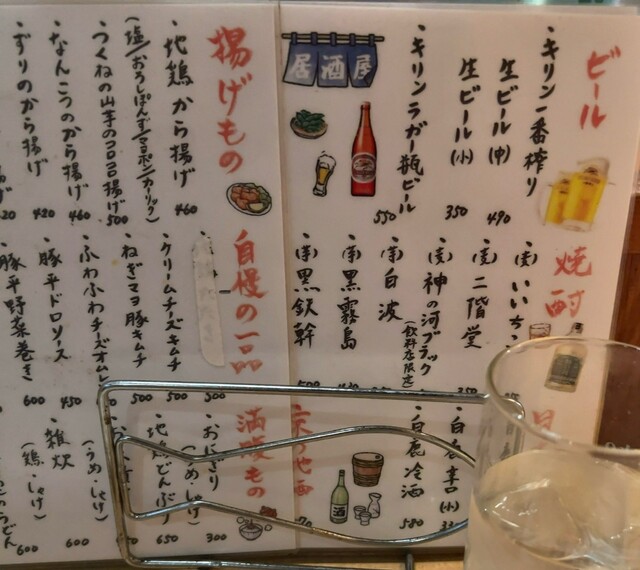 ビール
・キリン一番搾り
生ビール(中) 490
生ビール(小) 350
・キリンラガー瓶ビール 550
居酒屋
揚げもの
・地鶏から揚げ 460
(塩/おろしぽんず/マヨポン/ガーリック)
・つくねの山芋のコロコロ揚げ 500
・なんこつのから揚げ 460
・ずりのから揚げ 420
焼酎
・(麦)いいちこ
・(麦)二階堂
・(麦)神の河ブラック
(飲料店限定)
・(芋)白波
・(芋)黒霧島
・(芋)黒鉄幹
自慢の一品
・クリームチーズキムチ 500
・ねぎマヨ豚キムチ 500
・ふわふわチーズオムレツ
・豚平ドロソース 450
・豚平野菜巻き 600
・白鹿辛口(小)
・白鹿冷酒 580
酒
満腹もの
・おにぎり
(うめ・しゃけ) 300
・地鶏どんぶり 650
(うめ・しゃけ) 600
・雑炊
(鶏・しゃけ) 600
うどん